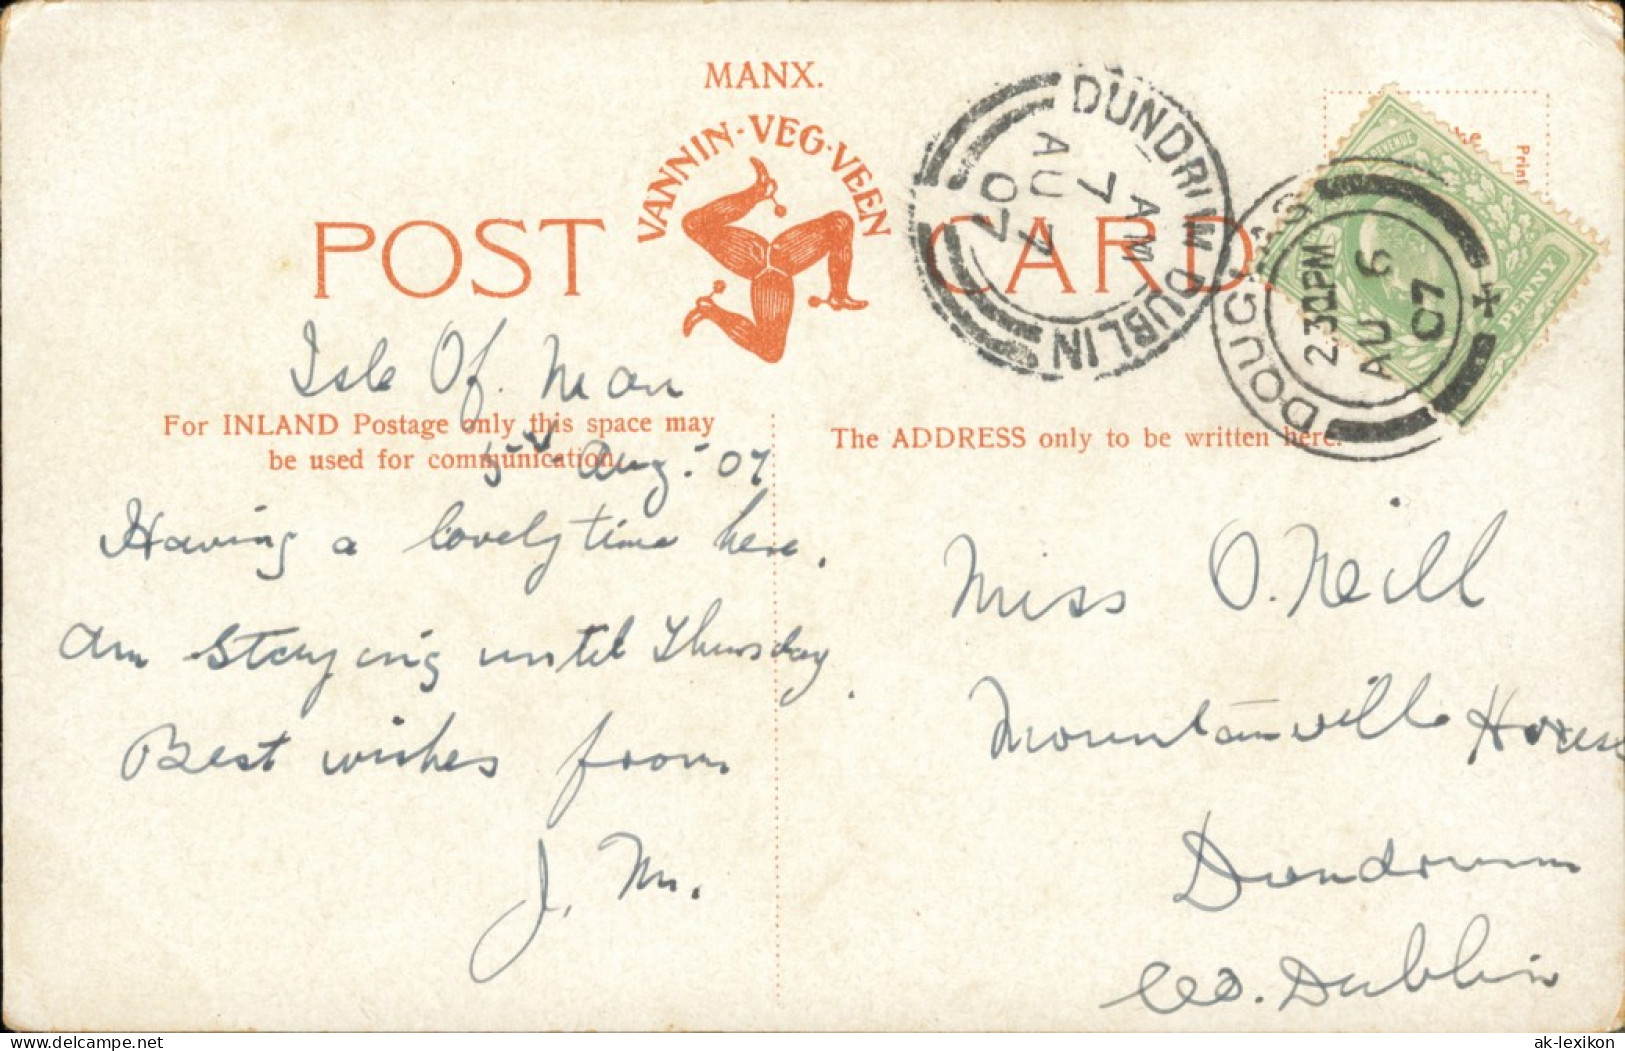 MANX.
VANNIN·VEG·VEEN
POST CARD
DUNDRUM DUBLIN
7 AM
AU 7
07
DOUGLAS
2.30 PM
AU 6
07
REVENUE
PENNY
Print
Isle Of. Man
For INLAND Postage only this space may
be used for communication.
Aug: 07
Having a lovely time here.
Am staying until Thursday.
Best wishes from
J. M.
The ADDRESS only to be written here.
Miss O. Neill
Mountanville House
Dundrum
Co. Dublin
hippostcard.com
ak-lexikon